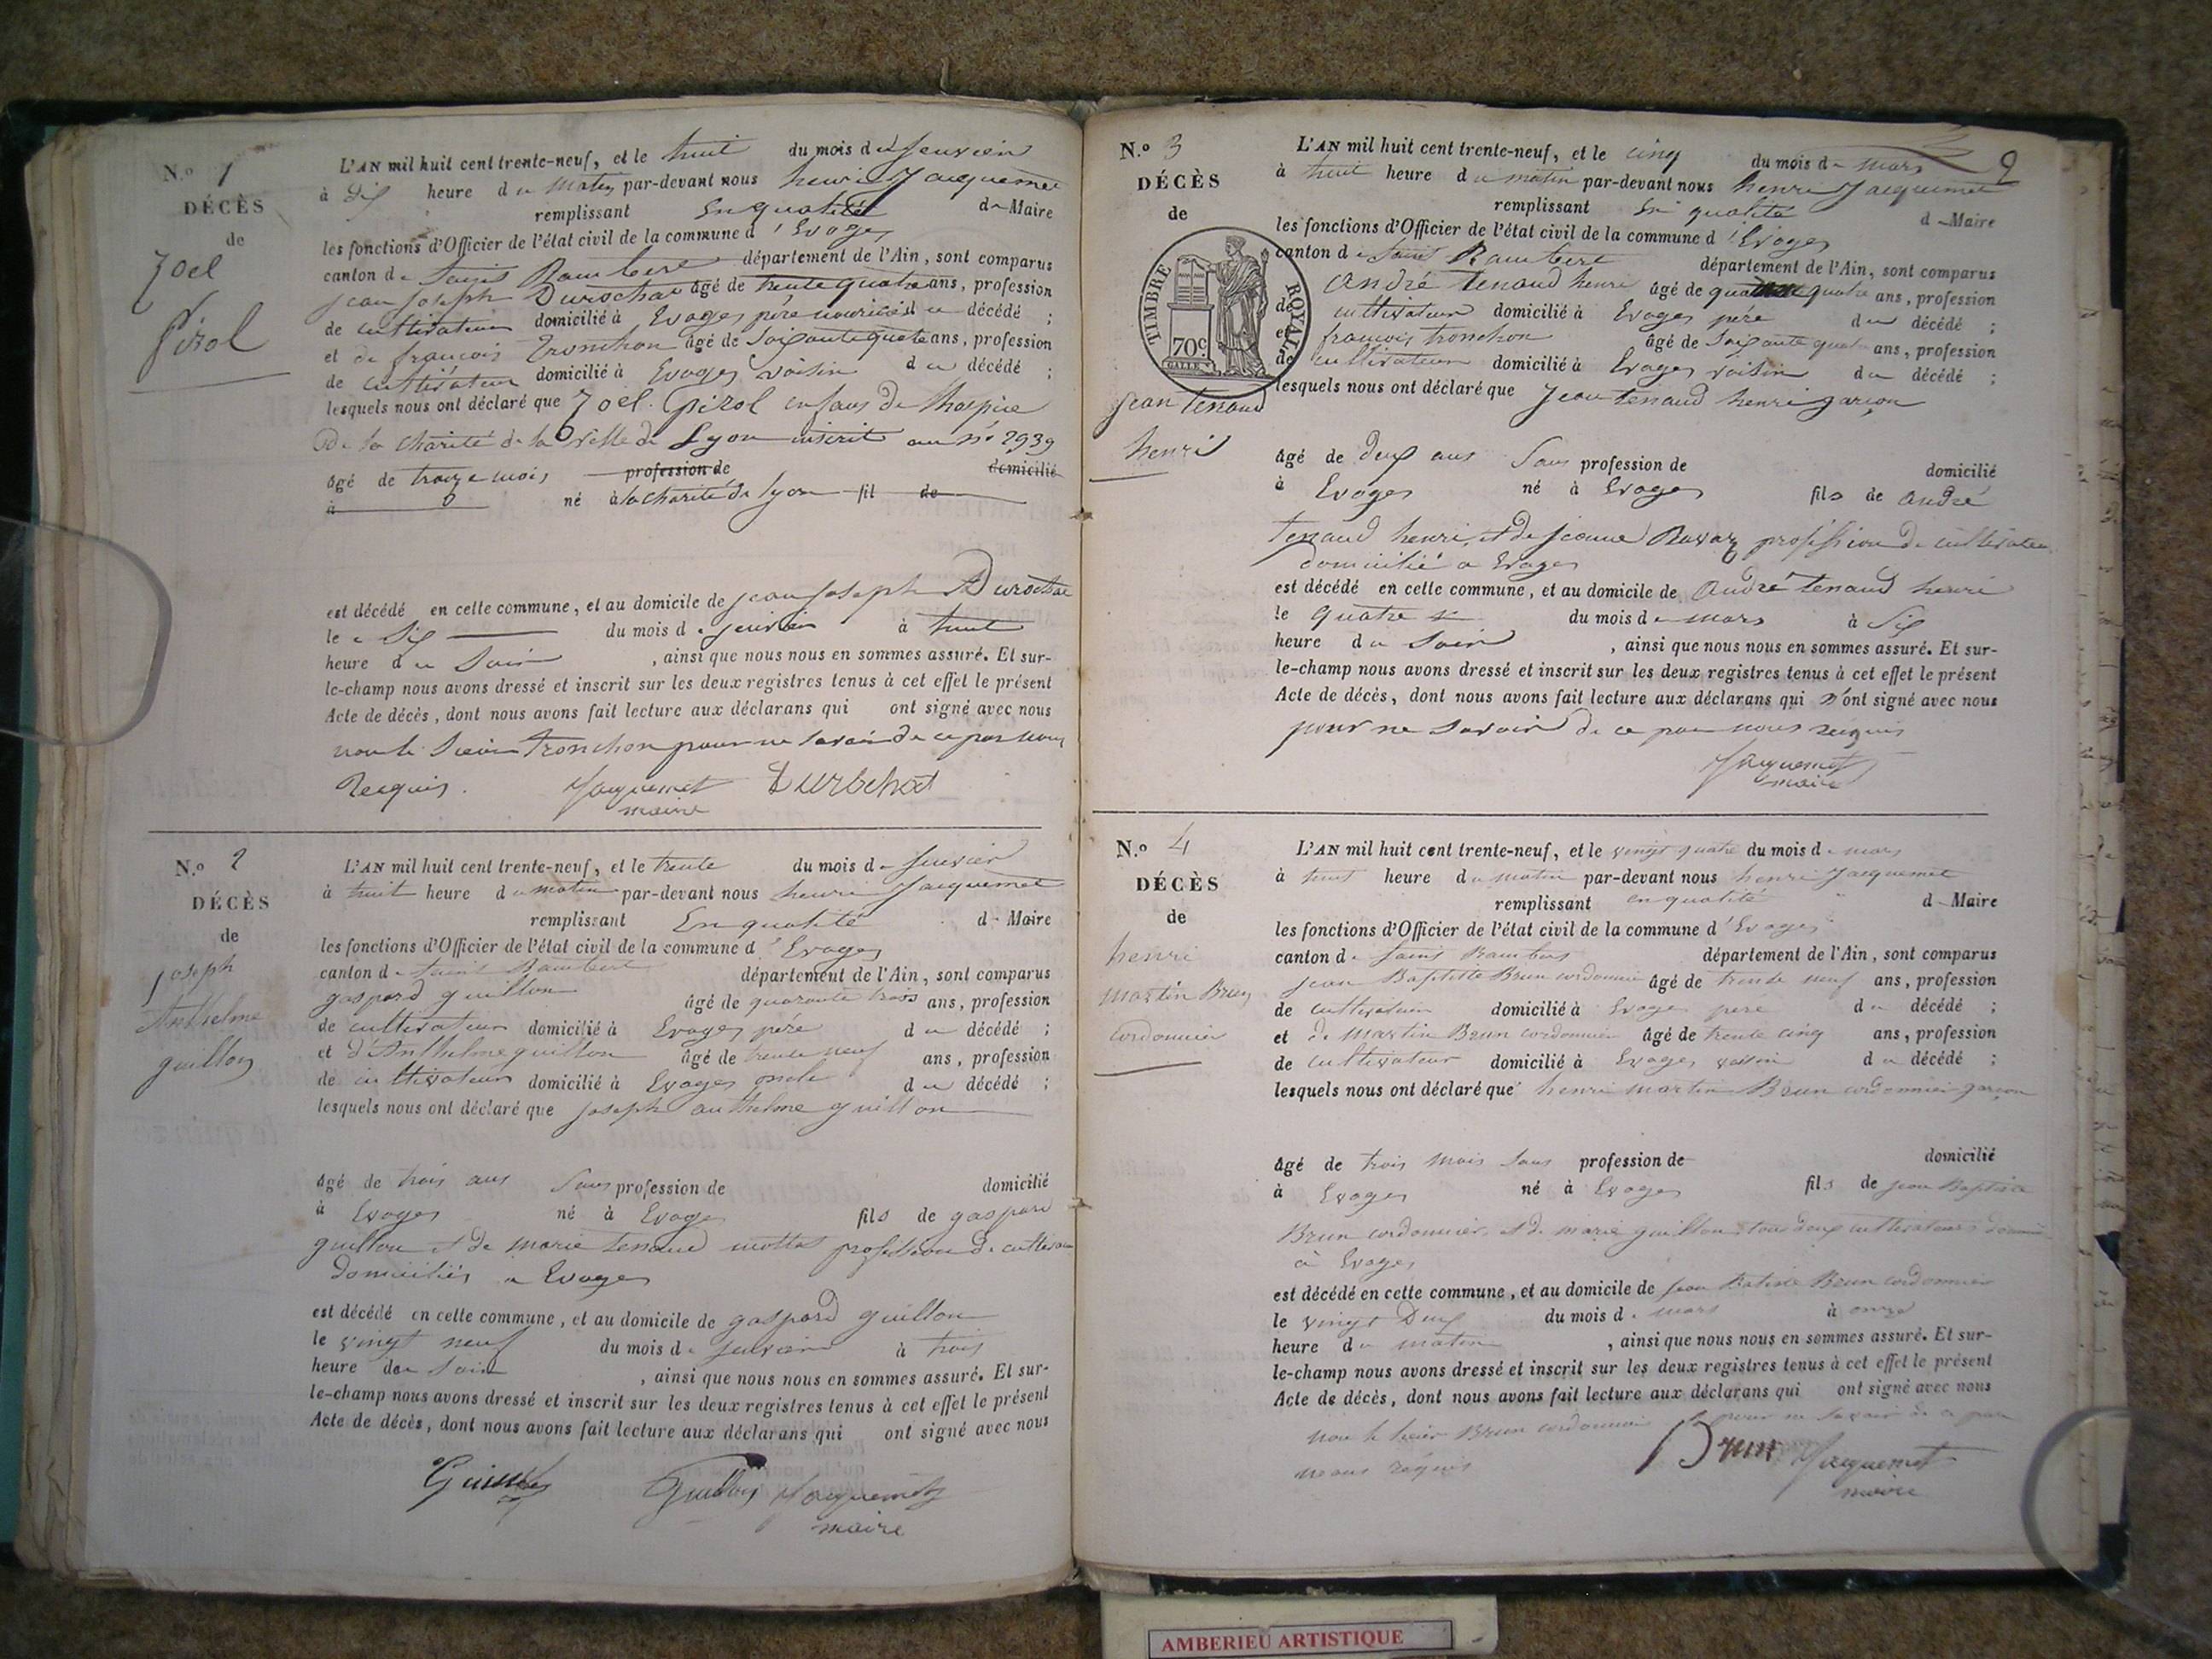 N.o 1
DÉCÈS
de
Joel
Pirol
L'AN mil huit cent trente-neuf, et le huit du mois de Jenvier
à dix heure du matin par-devant nous henri Jacquemet
remplissant En qualité de Maire
les fonctions d'Officier de l'état civil de la commune d'Evoges
canton de Saint Rambert département de l'Ain, sont comparus
jean joseph Durochat âgé de trente quatre ans, profession
de cultivateur domicilié à Evoges père nouricié du décédé ;
et de françois tronchon âgé de soixante quatre ans, profession
de cultivateur domicilié à Evoges voisin du décédé ;
lesquels nous ont déclaré que Joel Pirol enfans de lhospice
De la charité de la ville de Lyon inscrit au n° 2939
âgé de traize mois profession de domicilié
à né à la charité de lyon fil de
est décédé en cette commune, et au domicile de jean joseph Durochat
le six du mois de jenvier à huit
heure du soir , ainsi que nous nous en sommes assuré. Et sur-
le-champ nous avons dressé et inscrit sur les deux registres tenus à cet effet le présent
Acte de décès, dont nous avons fait lecture aux déclarans qui ont signé avec nous
non le sieur tronchon pour ne savoir de ce par nous
Requis. Jacquemet Durochat
maire
N.o 2
DÉCÈS
de
joseph
Anthelme
guillon
L'AN mil huit cent trente-neuf, et le trente du mois de Jenvier
à huit heure du matin par-devant nous henri Jacquemet
remplissant En qualité de Maire
les fonctions d'Officier de l'état civil de la commune d'Evoges
canton de Saint Rambert département de l'Ain, sont comparus
gaspard guillon âgé de quarante trois ans, profession
de cultivateur domicilié à Evoges père du décédé ;
et d'Anthelme guillon âgé de trente neuf ans, profession
de cultivateur domicilié à Evoges oncle du décédé ;
lesquels nous ont déclaré que joseph anthelme guillon
âgé de trois ans Sans profession de domicilié
à Evoges né à Evoges fils de gaspard
guillon et de marie tenaud mottet profession de cultivateur
domiciliés a Evoges
est décédé en cette commune, et au domicile de gaspard guillon
le vingt neuf du mois de jenvier à trois
heure du soir , ainsi que nous nous en sommes assuré. Et sur-
le-champ nous avons dressé et inscrit sur les deux registres tenus à cet effet le présent
Acte de décès, dont nous avons fait lecture aux déclarans qui ont signé avec nous
Guillon Jacquemet
maire
2
N.o 3
DÉCÈS
de
TIMBRE ROYAL
70c
GALLE
jean tenaud
henri
L'AN mil huit cent trente-neuf, et le cinq du mois de mars
à huit heure du matin par-devant nous henri Jacquemet
remplissant En qualité de Maire
les fonctions d'Officier de l'état civil de la commune d'Evoges
canton de Saint Rambert département de l'Ain, sont comparus
André tenaud henri âgé de quatre ans, profession
de cultivateur domicilié à Evoges père du décédé ;
et françois tronchon âgé de soixante quatre ans, profession
de cultivateur domicilié à Evoges voisin du décédé ;
lesquels nous ont déclaré que Jean tenaud henri garçon
âgé de deux ans Sans profession de domicilié
à Evoges né à Evoges fils de andré
tenaud henri, et de jeanne Ravaz profession de cultivateur
domicilié a Evoges
est décédé en cette commune, et au domicile de André tenaud henri
le quatre du mois de mars à six
heure du soir , ainsi que nous nous en sommes assuré. Et sur-
le-champ nous avons dressé et inscrit sur les deux registres tenus à cet effet le présent
Acte de décès, dont nous avons fait lecture aux déclarans qui n'ont signé avec nous
pour ne savoir de ce par nous requis
Jacquemet
maire
N.o 4
DÉCÈS
de
henri
martin Brun
cordonnier
L'AN mil huit cent trente-neuf, et le vingt quatre du mois de mars
à huit heure du matin par-devant nous henri Jacquemet
remplissant en qualité de Maire
les fonctions d'Officier de l'état civil de la commune d'Evoges
canton de Saint Rambert département de l'Ain, sont comparus
jean Baptiste Brun cordonnier âgé de trente neuf ans, profession
de cultivateur domicilié à Evoges père du décédé ;
et de martin Brun cordonnier âgé de trente cinq ans, profession
de cultivateur domicilié à Evoges voisin du décédé ;
lesquels nous ont déclaré que henri martin Brun cordonnier garçon
âgé de trois mois sans profession de domicilié
à Evoges né à Evoges fils de jean Baptiste
Brun cordonnier, et de marie guillon tous deux cultivateurs
à Evoges
est décédé en cette commune, et au domicile de jean Batiste Brun cordonnier
le vingt Deux du mois de mars à onze
heure du matin , ainsi que nous nous en sommes assuré. Et sur-
le-champ nous avons dressé et inscrit sur les deux registres tenus à cet effet le présent
Acte de décès, dont nous avons fait lecture aux déclarans qui ont signé avec nous
non le sieur Brun cordonnier pour ne savoir de ce par
nous requis Brun Jacquemet
maire
AMBERIEU ARTISTIQUE